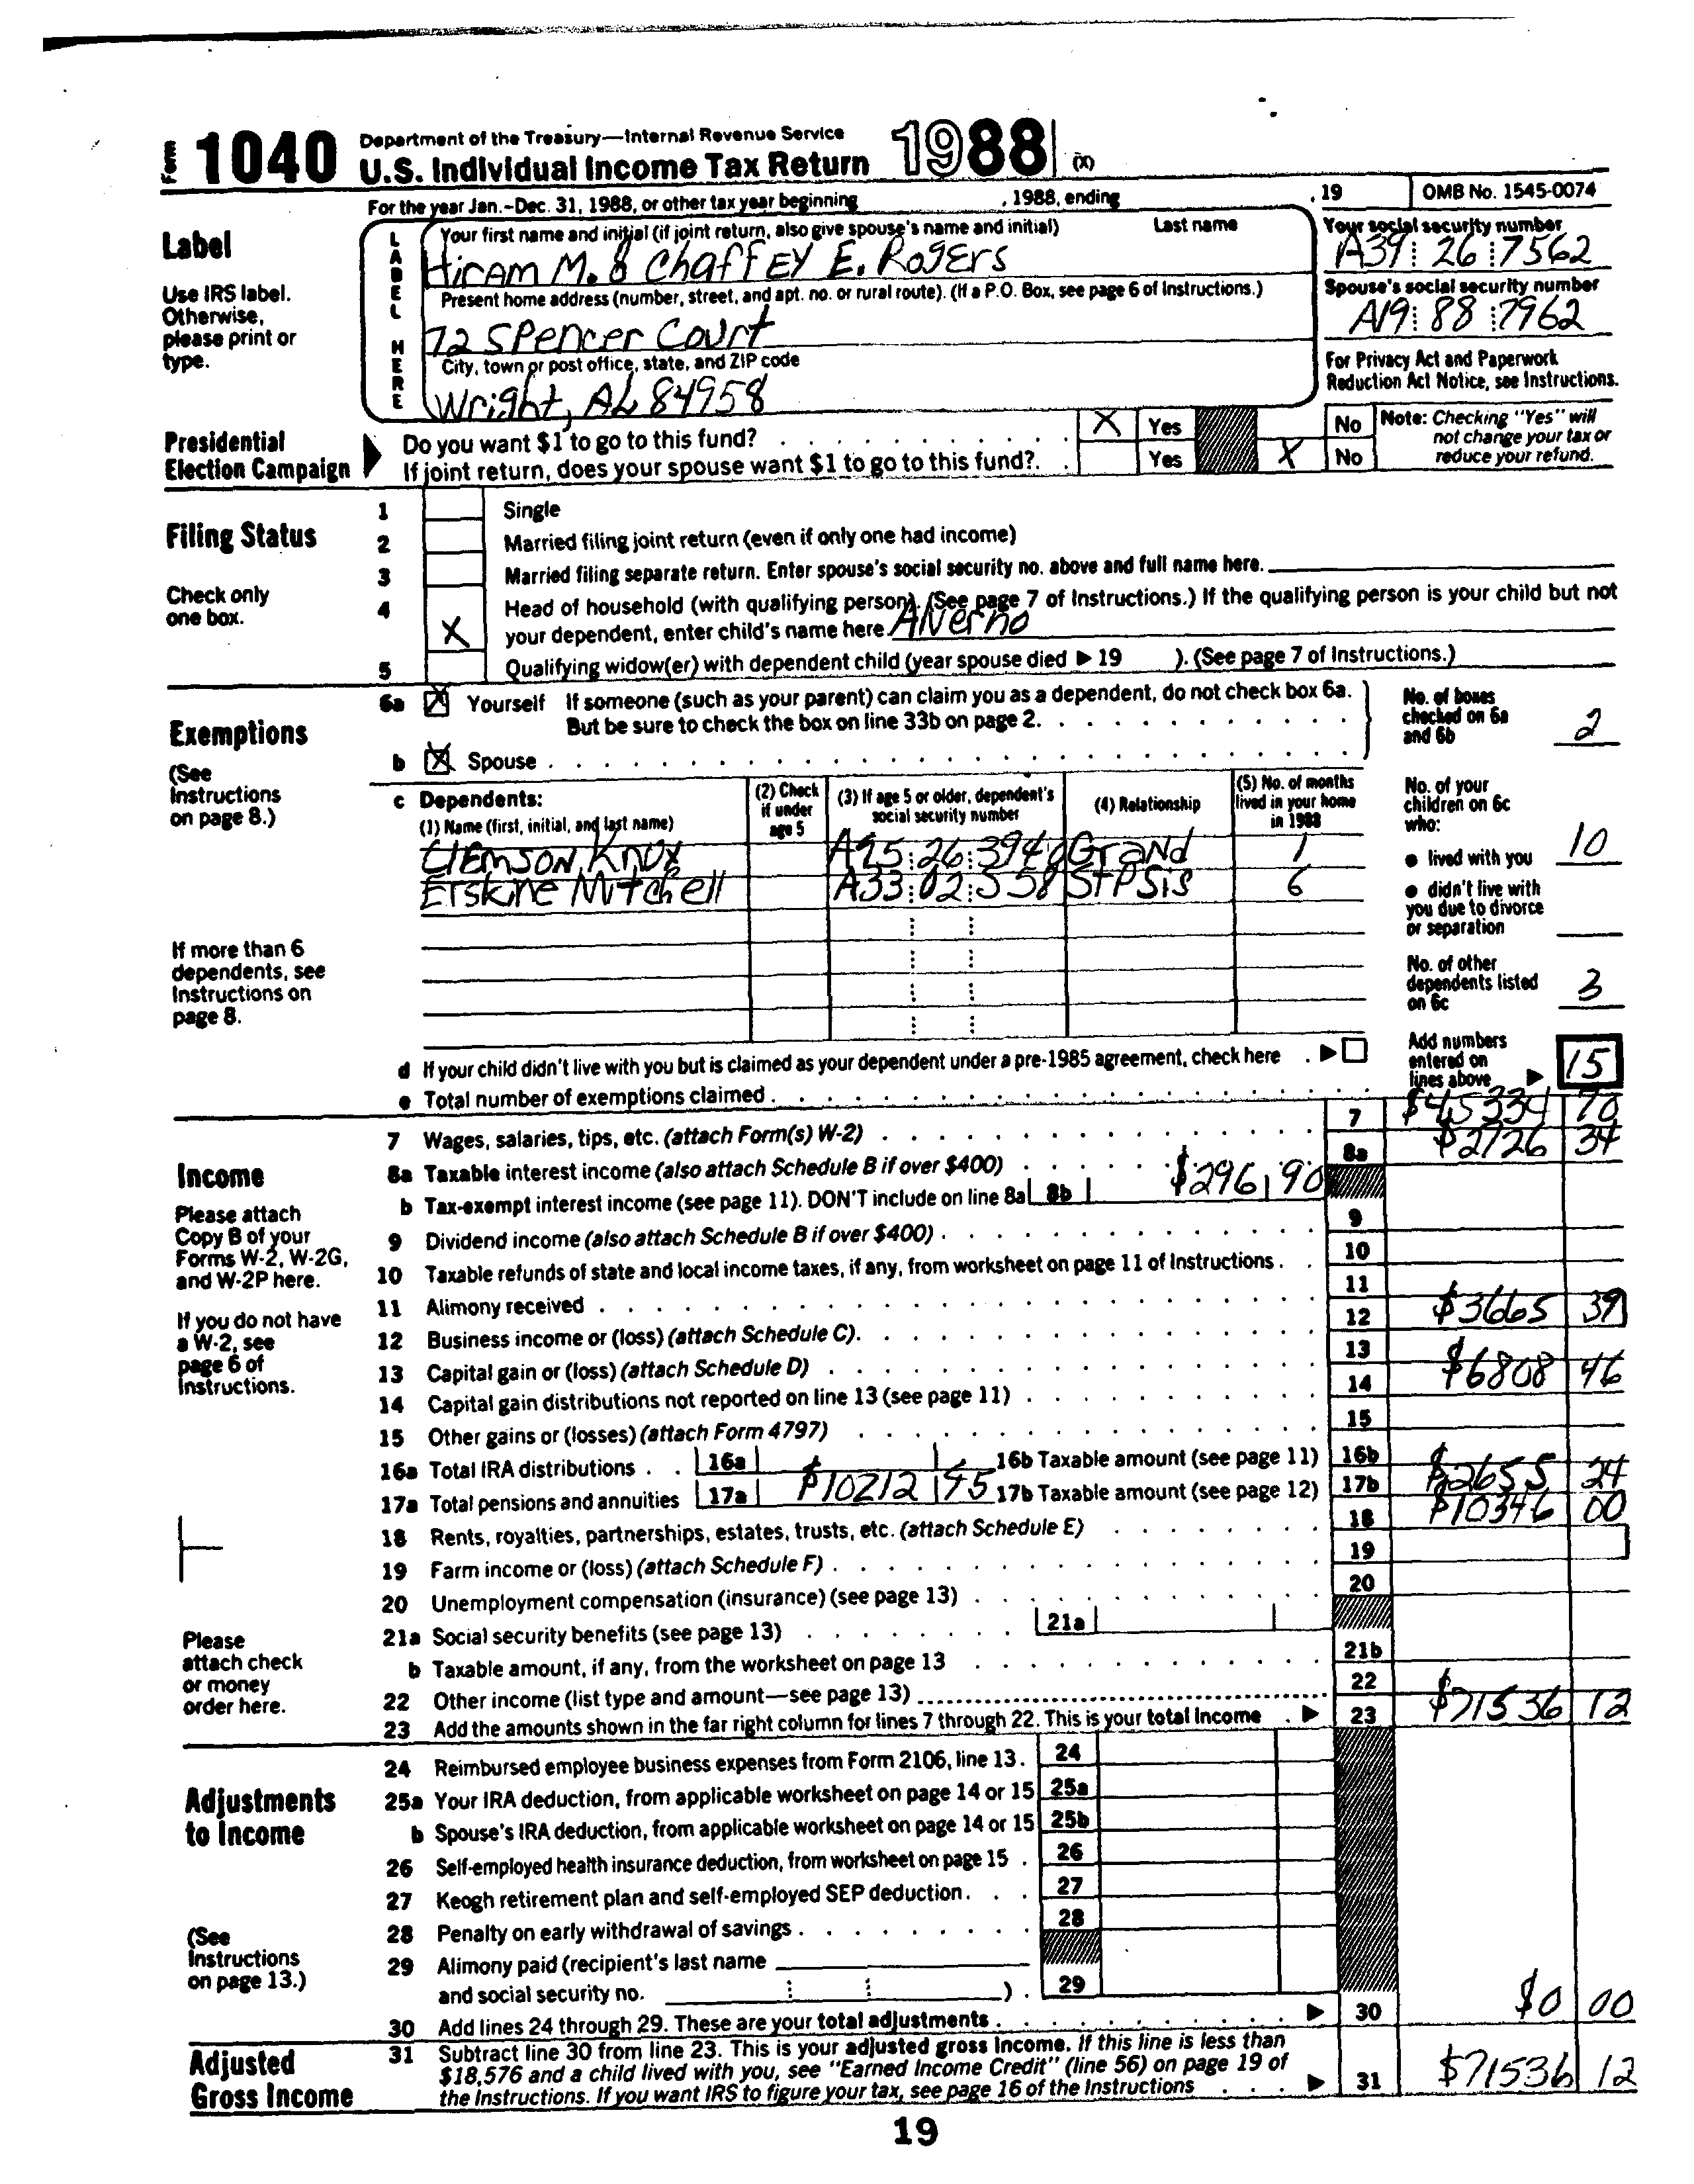 Form 1040 Department of the Treasury—Internal Revenue Service
U.S. Individual Income Tax Return 1988 (X)
For the year Jan.–Dec. 31, 1988, or other tax year beginning , 1988, ending , 19 OMB No. 1545-0074
Label
Use IRS label.
Otherwise,
please print or
type.
LABEL HERE
Your first name and initial (if joint return, also give spouse's name and initial) Last name
Hiram M. & Chaffey E. Rogers
Present home address (number, street, and apt. no. or rural route). (If a P.O. Box, see page 6 of Instructions.)
72 Spencer Court
City, town or post office, state, and ZIP code
Wright, AL 84958
Your social security number
A39 26 7562
Spouse's social security number
A19 88 7962
For Privacy Act and Paperwork
Reduction Act Notice, see Instructions.
Presidential
Election Campaign
Do you want $1 to go to this fund? X Yes No
If joint return, does your spouse want $1 to go to this fund? Yes X No
Note: Checking "Yes" will
not change your tax or
reduce your refund.
Filing Status
Check only
one box.
1 Single
2 Married filing joint return (even if only one had income)
3 Married filing separate return. Enter spouse's social security no. above and full name here.
4 Head of household (with qualifying person). (See page 7 of Instructions.) If the qualifying person is your child but not
X your dependent, enter child's name here. Averno
5 Qualifying widow(er) with dependent child (year spouse died ▶ 19 ). (See page 7 of Instructions.)
Exemptions
(See
Instructions
on page 8.)
6a X Yourself If someone (such as your parent) can claim you as a dependent, do not check box 6a.
But be sure to check the box on line 33b on page 2.
b X Spouse
No. of boxes
checked on 6a
and 6b 2
c Dependents:
(1) Name (first, initial, and last name)
(2) Check
if under
age 5
(3) If age 5 or older, dependent's
social security number
(4) Relationship
(5) No. of months
lived in your home
in 1988
Clemson Knox A95 26 3940 Grand 1
Erskine Mitchell A33 02 558 StpSis 6
If more than 6
dependents, see
Instructions on
page 8.
No. of your
children on 6c
who:
● lived with you 10
● didn't live with
you due to divorce
or separation
No. of other
dependents listed
on 6c 3
d If your child didn't live with you but is claimed as your dependent under a pre-1985 agreement, check here ▶
e Total number of exemptions claimed
Add numbers
entered on
lines above ▶ 15
Income
Please attach
Copy B of your
Forms W-2, W-2G,
and W-2P here.
If you do not have
a W-2, see
page 6 of
Instructions.
Please
attach check
or money
order here.
7 Wages, salaries, tips, etc. (attach Form(s) W-2) 7 $45334 70
8a Taxable interest income (also attach Schedule B if over $400) 8a $2726 34
b Tax-exempt interest income (see page 11). DON'T include on line 8a 8b $296 90
9 Dividend income (also attach Schedule B if over $400) 9
10 Taxable refunds of state and local income taxes, if any, from worksheet on page 11 of Instructions 10
11 Alimony received 11
12 Business income or (loss) (attach Schedule C) 12 $3665 39
13 Capital gain or (loss) (attach Schedule D) 13
14 Capital gain distributions not reported on line 13 (see page 11) 14 $6808 46
15 Other gains or (losses) (attach Form 4797) 15
16a Total IRA distributions 16a 16b Taxable amount (see page 11) 16b
17a Total pensions and annuities 17a $10212 95 17b Taxable amount (see page 12) 17b $2655 24
18 Rents, royalties, partnerships, estates, trusts, etc. (attach Schedule E) 18 $10346 00
19 Farm income or (loss) (attach Schedule F) 19
20 Unemployment compensation (insurance) (see page 13) 20
21a Social security benefits (see page 13) 21a
b Taxable amount, if any, from the worksheet on page 13 21b
22 Other income (list type and amount—see page 13) 22
23 Add the amounts shown in the far right column for lines 7 through 22. This is your total income ▶ 23 $71536 12
Adjustments
to Income
(See
Instructions
on page 13.)
24 Reimbursed employee business expenses from Form 2106, line 13. 24
25a Your IRA deduction, from applicable worksheet on page 14 or 15 25a
b Spouse's IRA deduction, from applicable worksheet on page 14 or 15 25b
26 Self-employed health insurance deduction, from worksheet on page 15 26
27 Keogh retirement plan and self-employed SEP deduction 27
28 Penalty on early withdrawal of savings 28
29 Alimony paid (recipient's last name
and social security no. ) 29
30 Add lines 24 through 29. These are your total adjustments ▶ 30 $0 00
Adjusted
Gross Income
31 Subtract line 30 from line 23. This is your adjusted gross income. If this line is less than
$18,576 and a child lived with you, see "Earned Income Credit" (line 56) on page 19 of
the Instructions. If you want IRS to figure your tax, see page 16 of the Instructions ▶ 31 $71536 12
19